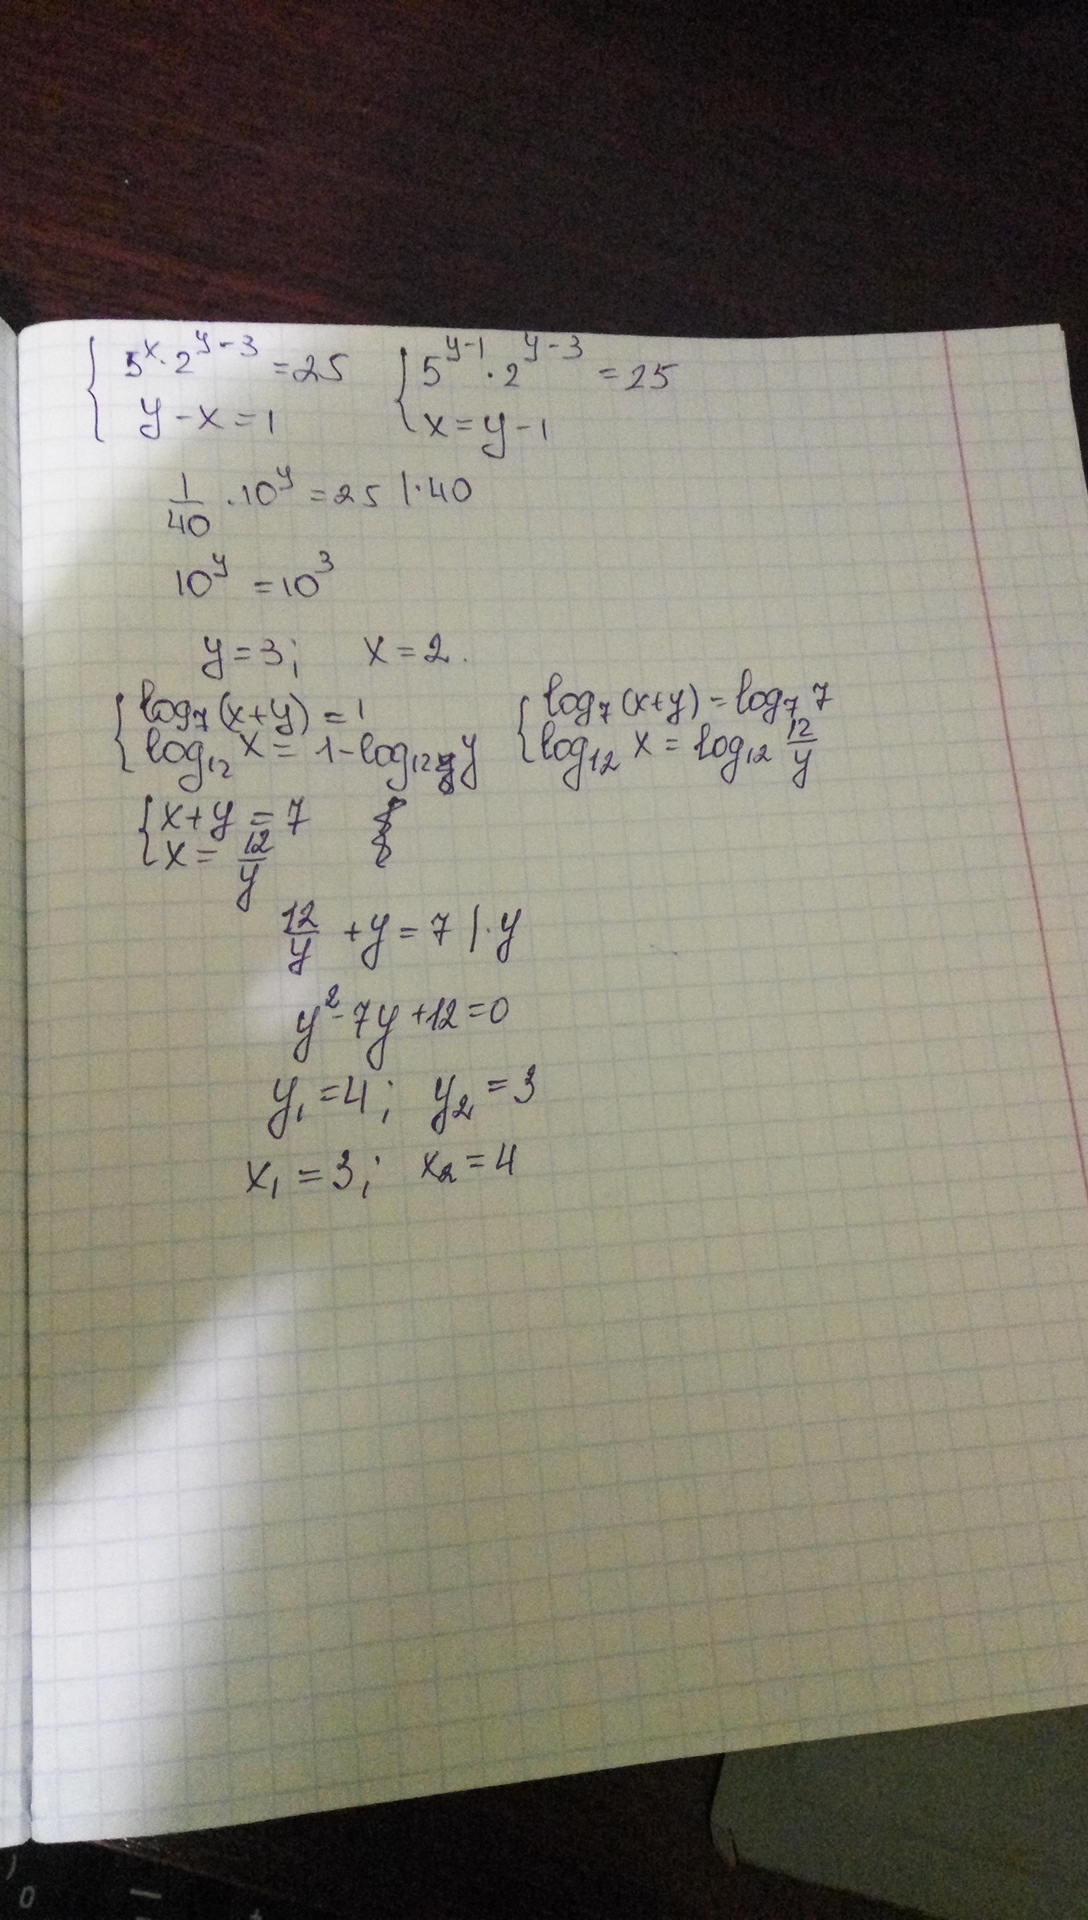 { 5^x · 2^(y-3) = 25   { 5^(y-1) · 2^(y-3) = 25
y - x = 1   x = y - 1
1/40 · 10^y = 25 | · 40
10^y = 10^3
y = 3; x = 2.
{ log₇(x+y) = 1   { log₇(x+y) = log₇7
log₁₂ x = 1 - log₁₂ y   log₁₂ x = log₁₂ 12/y
{ x + y = 7
x = 12/y
12/y + y = 7 | · y
y² - 7y + 12 = 0
y₁ = 4; y₂ = 3
x₁ = 3; x₂ = 4